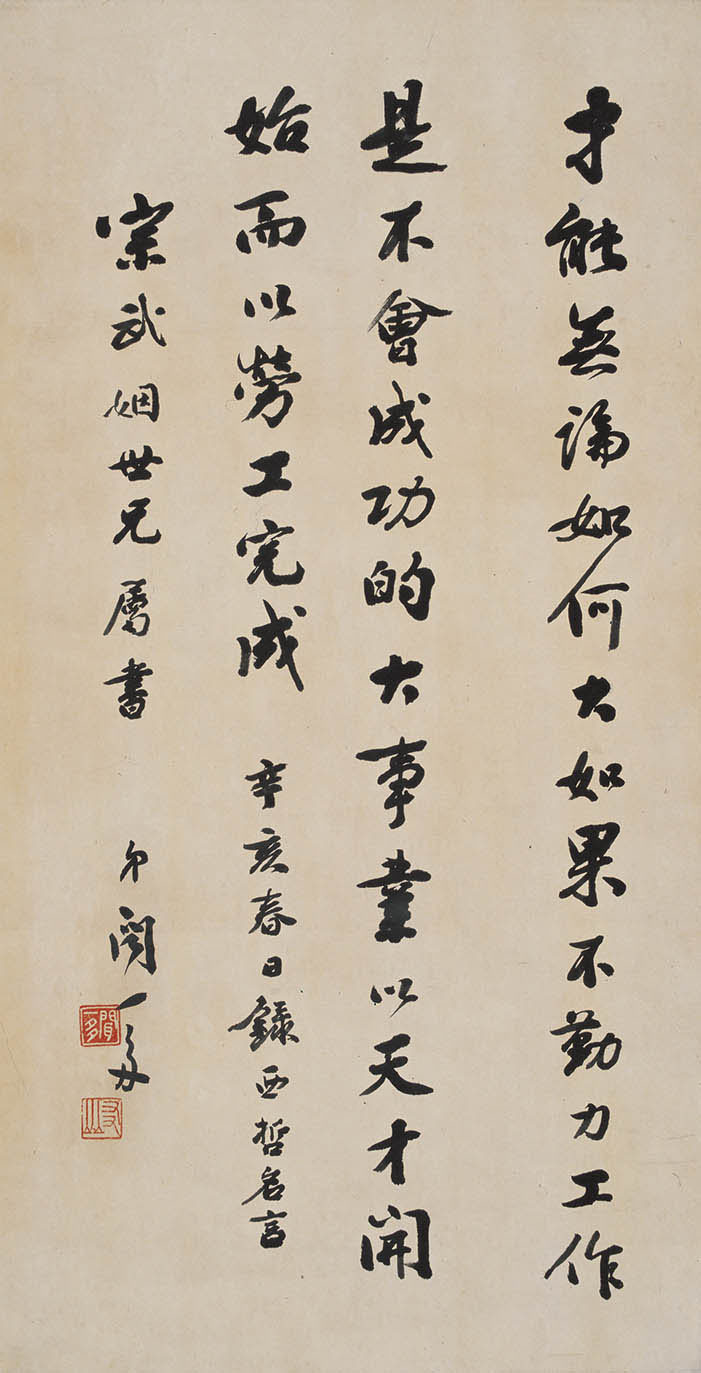 才能無論如何大如果不勤力工作
是不會成功的大事業以天才開
始而以勞工完成 辛亥春日錄西哲名言
宗武姻世兄屬書 弟聞一多
聞一多
友山